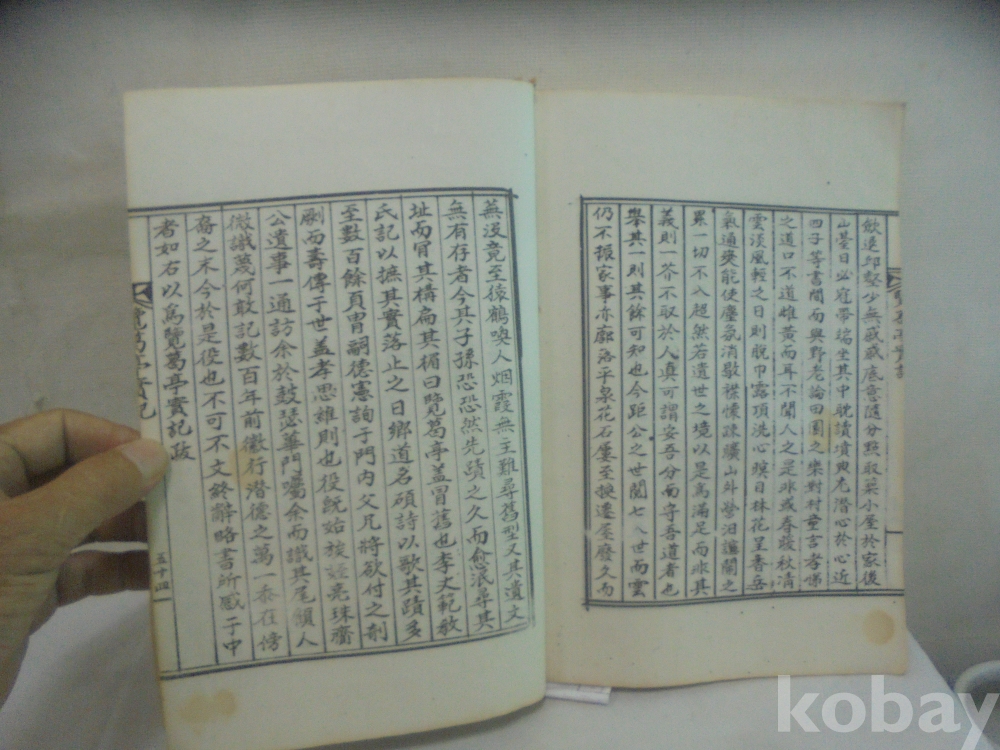 飮退却壑少無慼慼底意隨分點取築小屋於家後
山臺日必冠帶端坐其中耽讀墳典尤潛心於心近
四子等書間而與野老論田園之樂對村童言孝悌
之道口不道雌黃而耳不聞人之是非或春暖秋淸
雲淡風輕之日則脫巾露頂洗心瞑目林花呈香岳
氣通爽能使塵氛消歇襟懷疎曠山外營汨譊鬧之
累一切不入超然若遺世之境以是爲滿足而非其
義則一芥不取於人眞可謂安吾分而守吾道者也
擧其一則其餘可知也今距公之世閱七八世而雲
仍不振家事亦廓落平泉花石屢至換遷屋廢久而
蕪沒竟至猿鶴嘆人烟霞無主難尋舊型又其遺文
無有存者今其子孫恐恐然先蹟之久而愈泯尋其
址而冒其構扁其楣曰覽葛亭盖冒舊也李丈範敎
氏記以摭其實落止之日鄕道名碩詩以歌其蹟多
至數百餘頁冑嗣德憲詢于門內父兄將欲付之剞
劂而壽傳于世盖孝思維則也役旣始族姪亮珠齎
公遺事一通訪余於皷瑟華門囑余而識其尾顧人
微識蔑何敢記數百年前徽行潛德之萬一忝在傍
裔之末今於是役也不可不文終辭略書所感于中
者如右以爲覽葛亭實記跋
覽葛亭實記
五十四
kobay